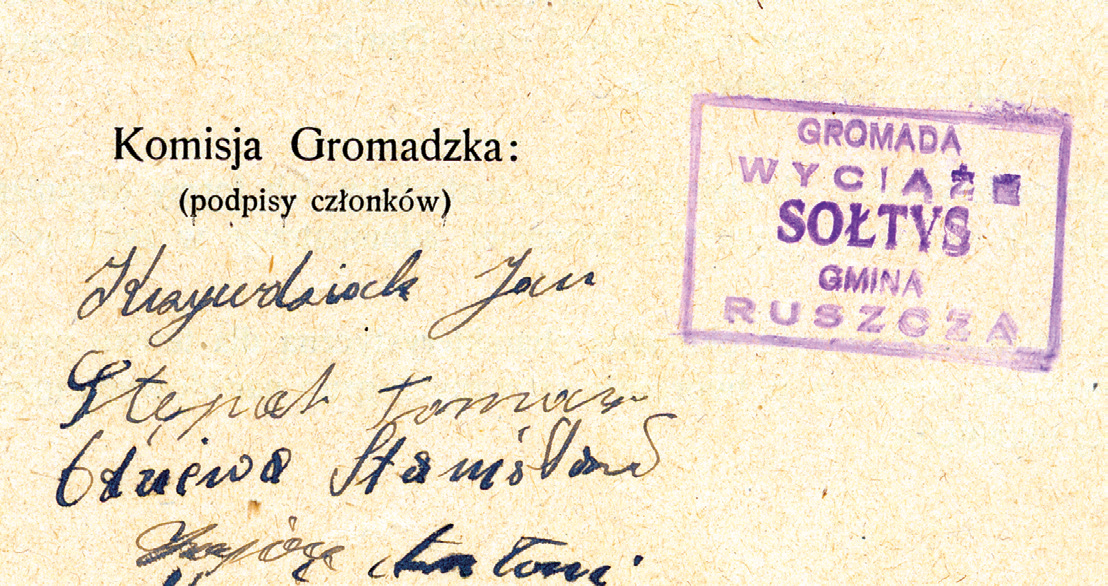 Komisja Gromadzka:
(podpisy członków)
GROMADA
WYCIĄŻE
SOŁTYS
GMINA
RUSZCZA
Krzywdziak Jan
Stępak Tomasz
Stanisław
Antoni